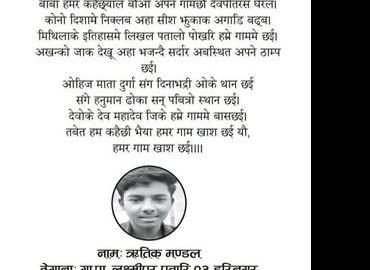 बाबा हमर कहैछथिन बौआ अपन गामछौ देवपितरसे घेरल।
कोनो दिशामे निक्लब अहा सीश झुकाक अगाडि बढ्ब।
मिथिलाके इतिहासमे लिखल पतालो पोखरि हम्रे गाममे छई।
अखन्को जाक देखू अहा भजन्दै सर्दार अबस्थित अपने ठाम्प
छई।
ओहिज माता दुर्गा संग दिनाभद्री ओके थान छई
संगे हनुमान ढोका सन् पबित्रो स्थान छई।
देवोके देव महादेव जिके हम्रे गाममे बासछई।
तबेत हम कहैछी भैया हमर गाम खाश छई यौ,
हमर गाम खाश छई।।।।
नामः ऋतिक मण्डल
ठेगानाः गा.पा. लक्ष्मीपुर पतारि ०३ हरिनगर